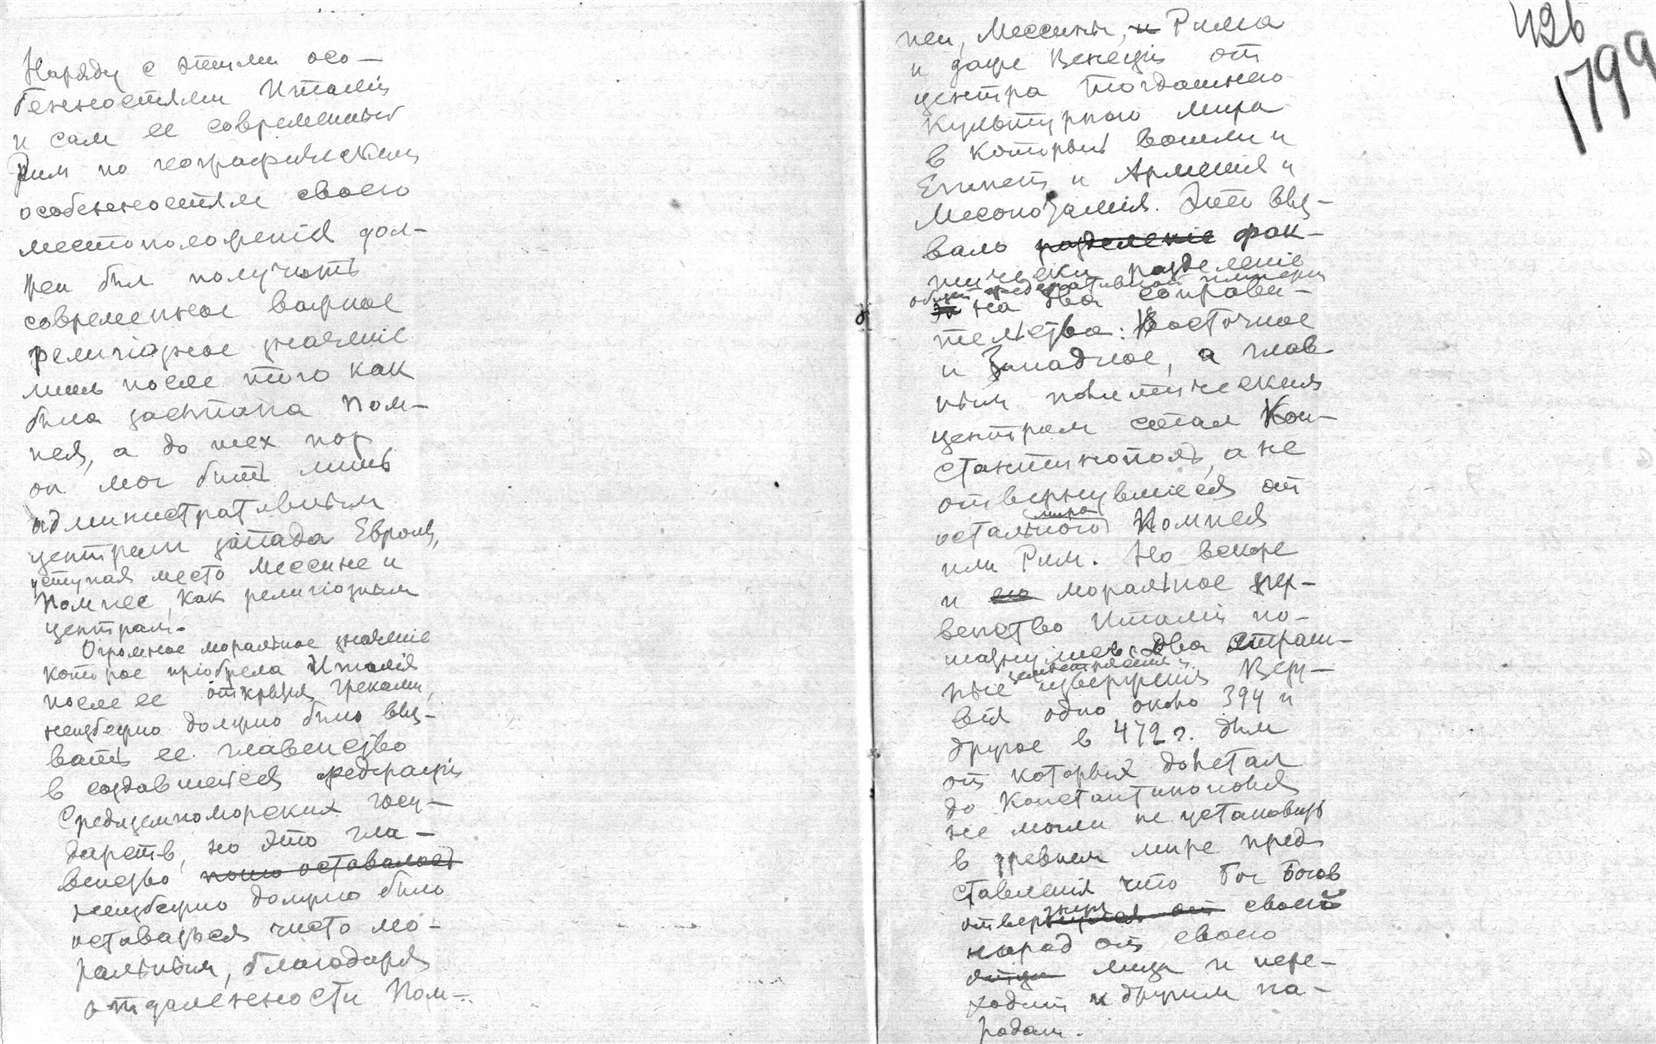 Наряду с этими осо-
бенностями Италіи
и сам ее современный
Рим по географическим
особенностям своего
местоположенія дол-
жен был получить
современное важное
религіозное значеніе
лишь после того как
была засыпана Пом-
пея, а до тех пор
он мог быть лишь
административным
центром запада Европы,
уступая место Мессине и
Помпее, как религіозным
центрам.
Огромное моральное значеніе
которое пріобрела Италія
после ее открытія греками,
неизбежно должно было выз-
вать ее главенство
в создавшейся федераціи
Средиземноморских госу-
дарств, но это гла-
венство, оставалось
неизбежно должно было
оставаться чисто мо-
ральным, благодаря
отдаленности Пом-
пеи, Мессины, и Рима
и даже Венеціи от
центра тогдашнего
культурного мира
в который вошли и
Египет и Арменія и
Месопотамія. Это выз-
вало разделеніе фак-
тически разделеніе
общей федеративной имперіи
на два соправи-
тельства: Восточное
и Западное, а глав
ным политическим
центром стал Кон-
стантинополь, а не
отвернувшіеся от
остального мира Помпея
или Рим. Но вскоре
и его моральное пер-
венство Италіи по-
шатнулось. Два страш-
ные землетрясенія и
изверженія Везу-
вія одно около 394 и
другое в 472 г. дым
от которых долетал
до Константинополя
не могли не установить
в древнем мире пред
ставленія что Бог Богов
отверг свой
народ от своего
лица и пере-
ходит к другим на-
родам.
426
1799